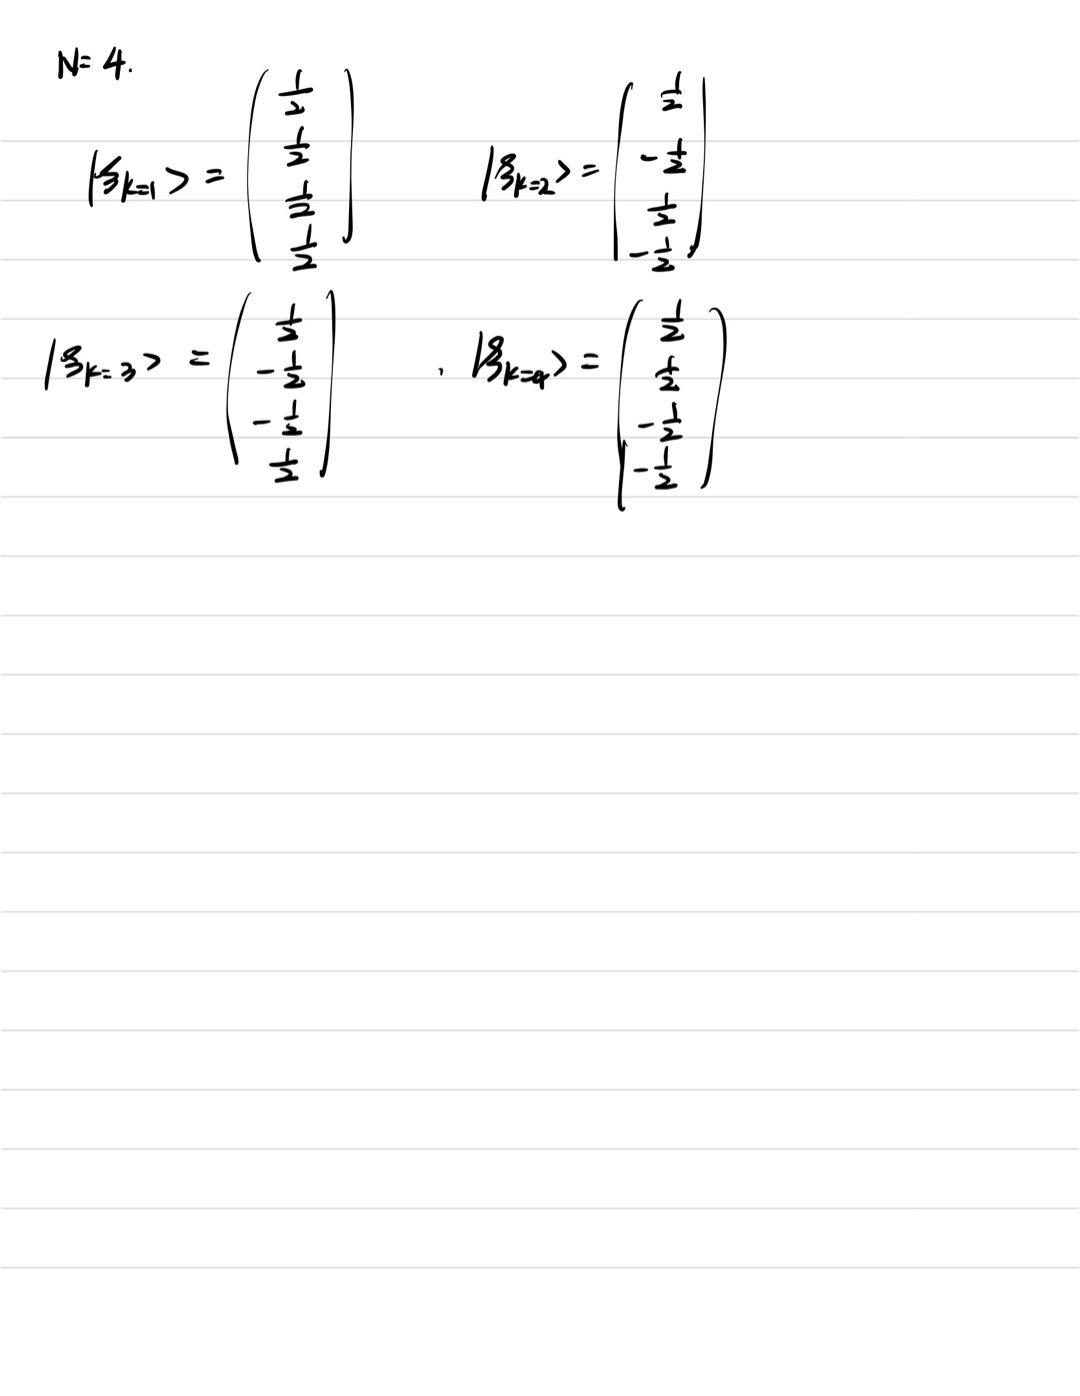 N=4.
|ξ_{k=1}> = (1/2, 1/2, 1/2, 1/2) |ξ_{k=2}> = (1/2, -1/2, 1/2, -1/2)
|ξ_{k=3}> = (1/2, -1/2, -1/2, 1/2) , |ξ_{k=4}> = (1/2, 1/2, -1/2, -1/2)